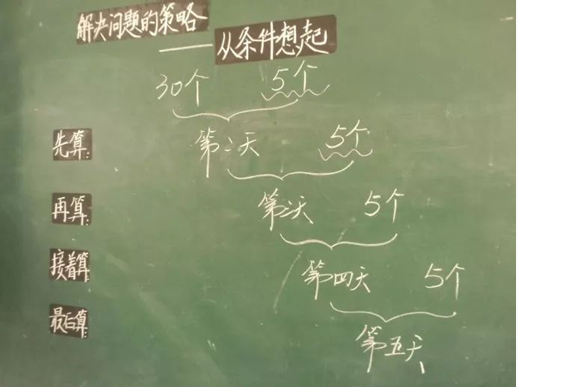 解决问题的策略
——从条件想起
30个 5个
先算: 第二天 5个
再算: 第三天 5个
接着算: 第四天 5个
最后算: 第五天